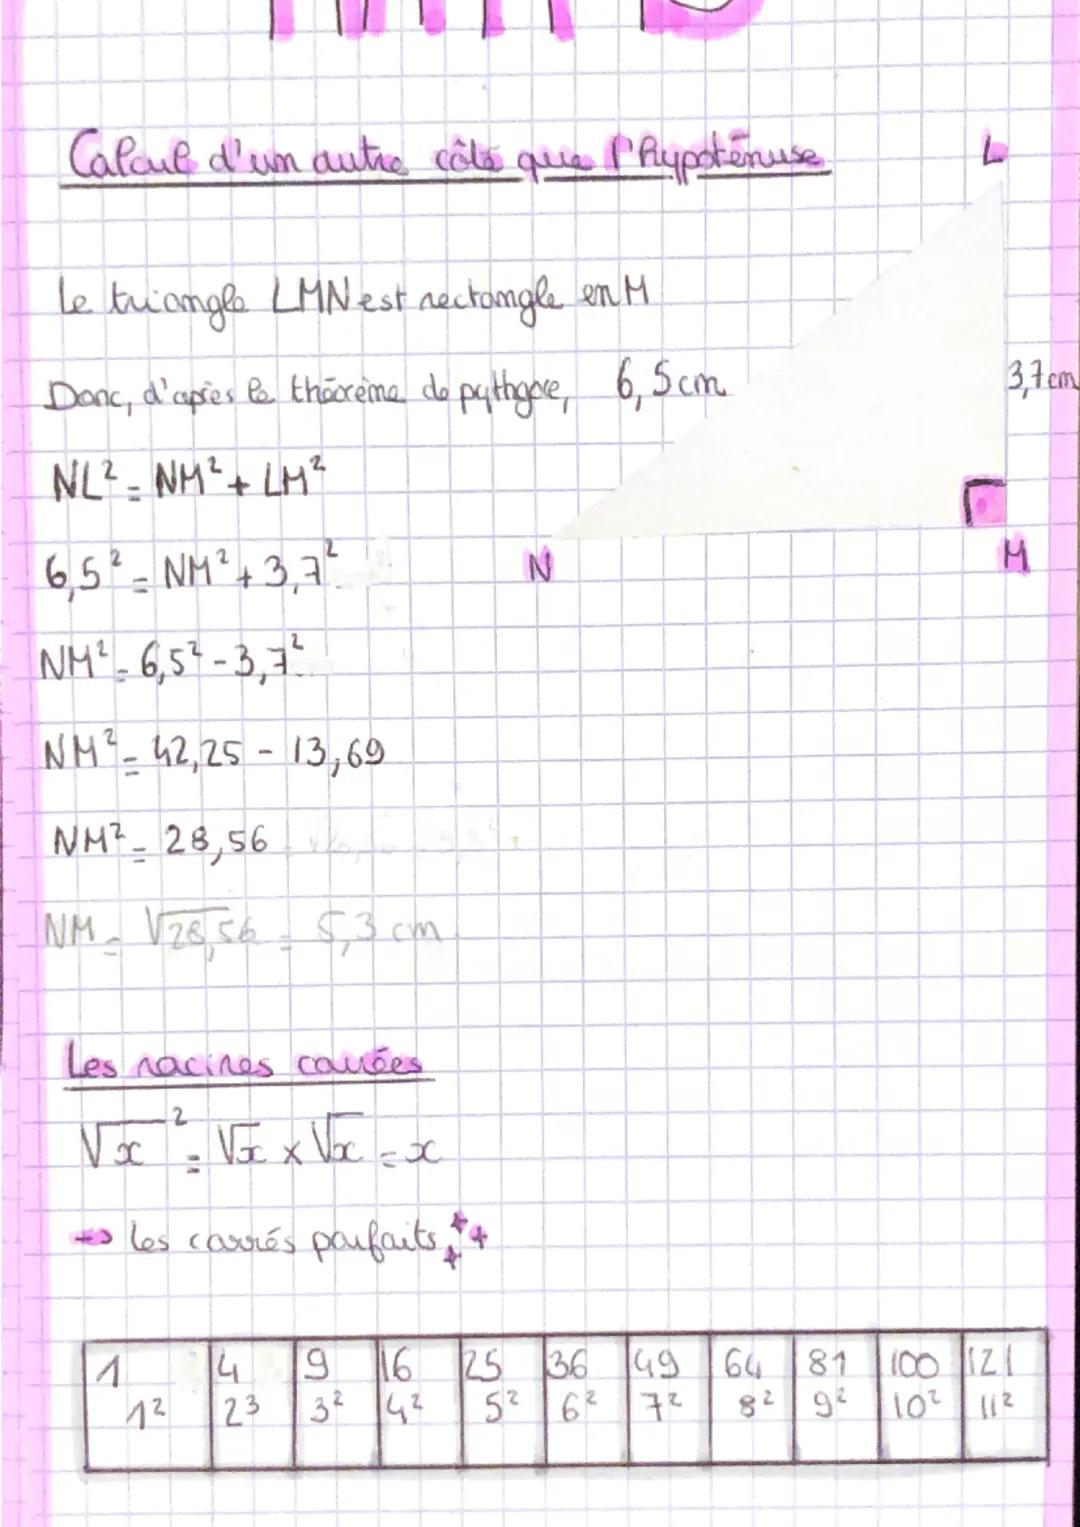 Calcul d'un autre côté que l'hypoténuse
L
Le triangle LMN est rectangle en M
Donc, d'après le théorème de pythgore, 6,5cm
3,7cm
NL² = NM² + LM²
6,5² = NM² + 3,7²
N
M
NM² = 6,5² - 3,7²
NM² = 42,25 - 13,69
NM² = 28,56
NM = √28,56 = 5,3 cm
Les racines carrées
√x² = √x × √x = x
→ les carrés parfaits
1 4 9 16 25 36 49 64 81 100 121
1² 2³ 3² 4² 5² 6² 7² 8² 9² 10² 11²